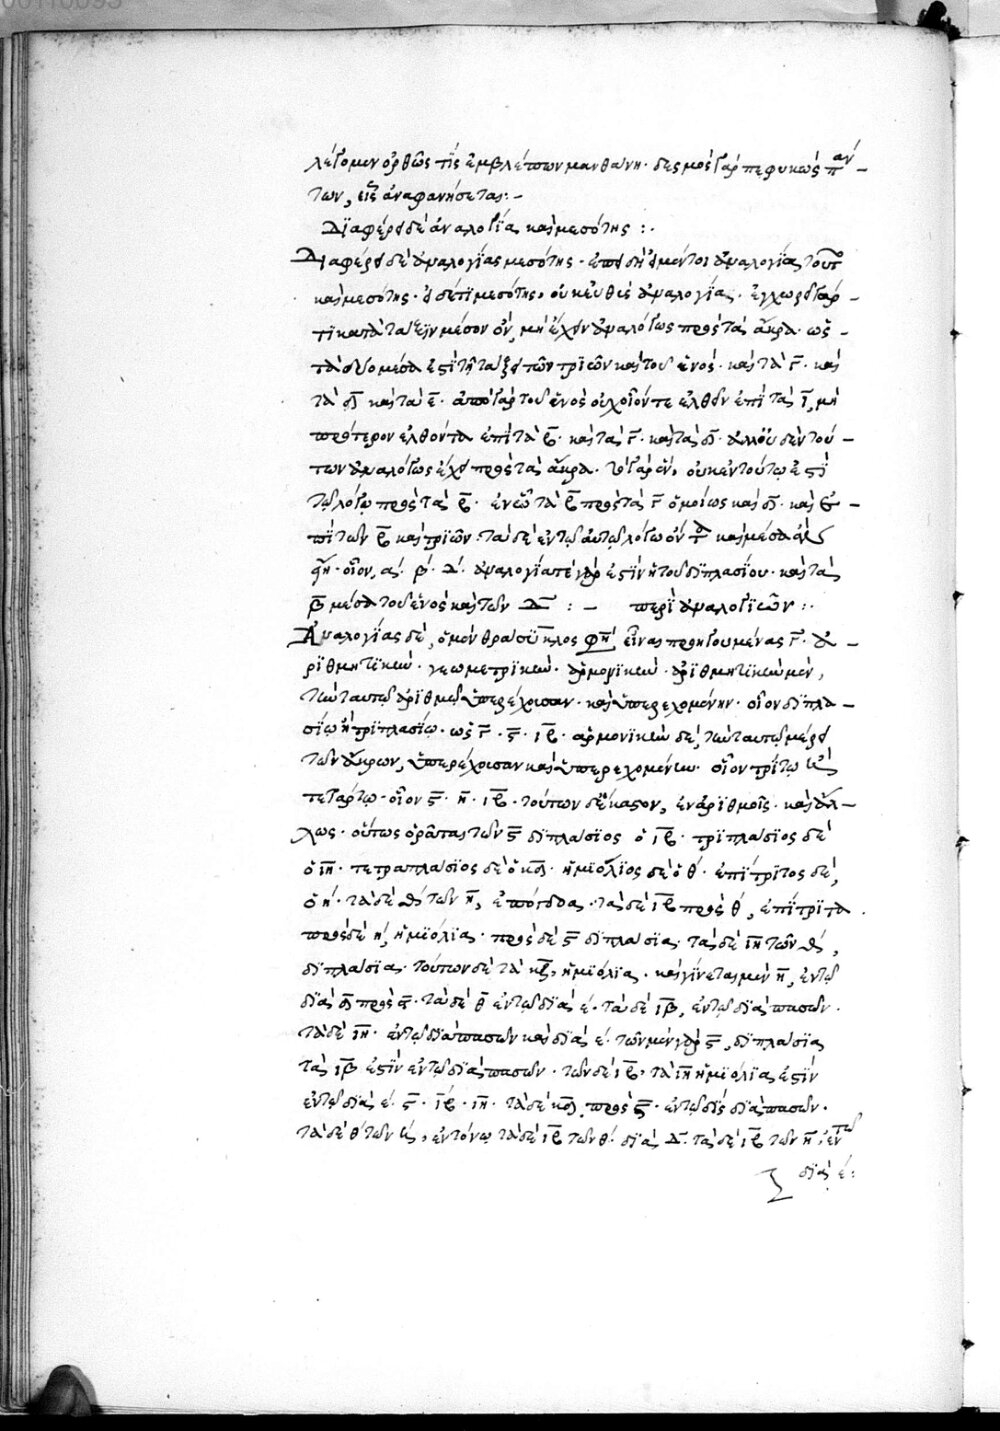 λέγομεν ὀρθῶς τίς ἐμβλέπων μανθάνῃ· δεσμὸς γὰρ πεφυκὼς πάν–
των, εἷς ἀναφανήσεται:–
Διαφέρει δὲ ἀναλογία καὶ μεσότης:·
Διαφέρει δὲ ἀναλογίας μεσότης· ἐπειδὴ εἰ μέν τι ἀναλογία, τοῦτο
καὶ μεσότης· εἰ δέ τι μεσότης, οὐκ εὐθὺς ἀναλογία. ἐγχωρεῖ γάρ–
τι κατὰ τάξιν μέσον ὂν, μὴ ἔχειν ἀναλόγως πρὸς τὰ ἄκρα. ὡς–
τὰ δύο μέσα ἐστὶ τῇ τάξει τῶν τριῶν καὶ τοῦ ἑνός· καὶ τὰ γ̅· καὶ
τὰ δ̅ καὶ τὰ ε̅· ἀπὸ γὰρ τοῦ ἑνὸς οὐχ οἷόν τε ἐλθεῖν ἐπὶ τὰ ι̅, μὴ
πρότερον ἐλθόντα ἐπὶ τὰ β̅· καὶ τὰ γ̅· καὶ τὰ δ̅· ἀλλ' οὐδὲν τού–
των ἀναλόγως ἔχει πρὸς τὰ ἄκρα. τὸ γὰρ ἓν, οὐκ ἐν τούτῳ ἐστὶ
τῷ λόγῳ πρὸς τὰ β̅· ἐν ᾧ τὰ β̅ πρὸς τὰ γ̅ ὁμοίως καὶ δ̅· καὶ ἐ–
πὶ τῶν β̅ καὶ τριῶν· τὰ δὲ ἐν τῷ αὐτῷ λόγῳ ὄντα καὶ μέσα ἂν
εἴη· οἷον, α΄. β΄. δ΄. ἀναλογία τε γάρ ἐστιν ἡ τοῦ διπλασίου· καὶ τὰ
β̅ μέσα τοῦ ἑνὸς καὶ τῶν δ̅:– περὶ ἀναλογιῶν:·
Ἀναλογίας δέ, ὁ μὲν θράσυλλος φησὶ, εἶναι προηγουμένας γ̅· ἀ–
ριθμητικήν· γεωμετρικήν· ἁρμονικήν· ἀριθμητικὴν μέν,
τὴν ταυτῷ ἀριθμῷ ὑπερέχουσαν· καὶ ὑπερεχομένην· οἷον διπλα–
σίῳ ἢ τριπλασίῳ· ὡς γ̅· ϛ̅· ιβ̅· ἁρμονικὴν δέ, τὴν ταυτῷ μέρει
τῶν ἄκρων, ὑπερέχουσαν καὶ ὑπερεχομένην· οἷον τρίτῳ
τετάρτῳ· οἷον ϛ̅· η̅· ιβ̅· τούτων δ' ἕκαστον, ἐν ἀριθμοῖς· καὶ ἄλ–
λως· οὕτως ὁρᾶται τῶν ϛ̅ διπλάσιος ὁ ιβ̅· τριπλάσιος δὲ
ὁ ιη̅· τετραπλάσιος δὲ ὁ κδ̅· ἡμιόλιος δὲ ὁ θ΄· ἐπίτριτος δὲ,
ὁ η΄· τὰ δὲ θ΄ τῶν η̅, ἐπόγδοα· τὰ δὲ ιβ̅ πρὸς θ΄, ἐπίτριτα.
πρὸς δὲ η΄, ἡμιόλια· πρὸς δὲ ϛ̅ διπλάσια· τὰ δὲ ιη̅ τῶν θ΄,
διπλάσια· τούτων δὲ τὰ κζ̅, ἡμιόλια· καὶ γίνεται μὲν η̅, ἐν τῷ
διὰ δ̅ πρὸς ϛ̅· τὰ δὲ θ̅ ἐν τῷ διὰ ε΄· τὰ δὲ ιβ̅, ἐν τῷ διὰ πασῶν·
τὰ δὲ ιη̅· ἐν τῷ διὰ πασῶν καὶ διὰ ε΄· τῶν μὲν γὰρ ϛ̅, διπλάσια
τὰ ιβ̅ ἐστὶν ἐν τῷ διὰ πασῶν· τῶν δὲ ιβ̅, τὰ ιη̅ ἡμιόλια ἐστὶν
ἐν τῷ διὰ ε΄· ϛ̅· ιβ̅· ιη̅· τὰ δὲ κδ̅ πρὸς ϛ̅· ἐν τῷ δὶς διὰ πασῶν·
τὰ δὲ θ΄ τῶν η΄, ἐν τόνῳ τὰ δὲ ιβ̅ τῶν θ΄. διὰ δ̅· τὰ δὲ ιβ̅ τῶν η̅, ἐν τῷ
διὰ ε΄: